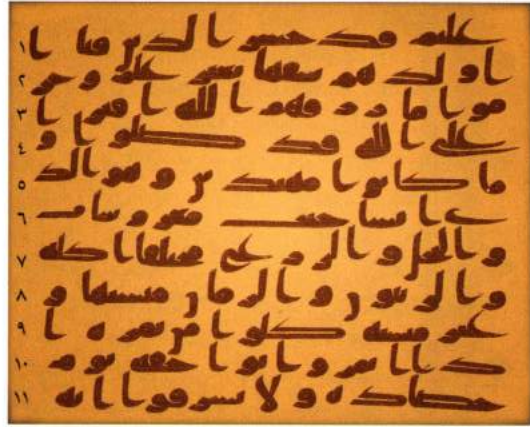 عليم قد خسر الذين قتلوا ١
اولدهم سفها بغير علم وحر ٢
موا ما رزقهم الله افترا ٣
على الله قد ضلوا و ٤
ما كانوا مهتدين وهو الذ ٥
ى انشا جنت معروشات ٦
والنخل والزرع مختلفا اكله ٧
والزيتون والرمان متشبها و ٨
غير متشبه كلوا من ثمره ا ٩
ذا اثمر واتوا حقه يوم ١٠
حصاده ولا تسرفوا انه ١١